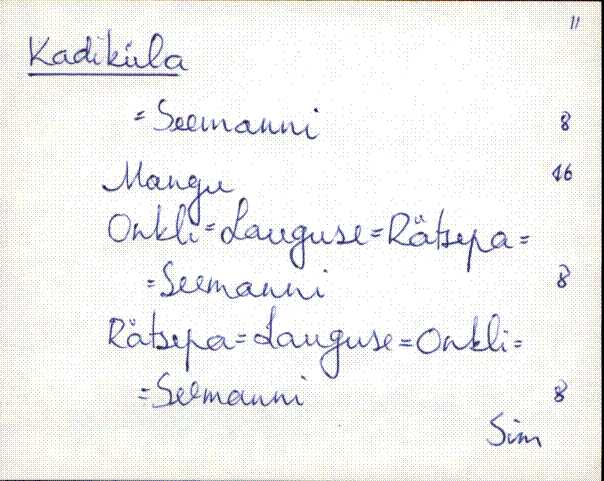 11
Kadiküla
= Seemanni 8
Mangu 16
Onkli = Lauguse = Rätsepa =
= Seemanni 8
Rätsepa = Lauguse = Onkli =
= Seemanni 8
Sim